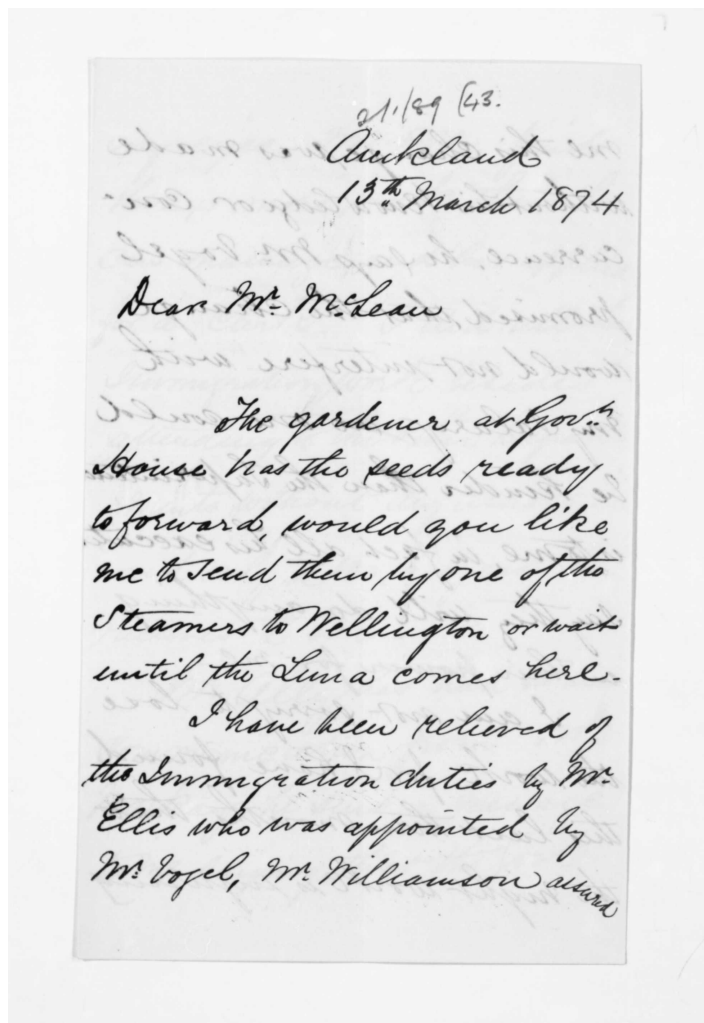 Auckland
13th March 1874
Dear Mr. McLean
The gardener at Govt.
House has the seeds ready
to forward, would you like
me to send them by one of the
Steamers to Wellington or wait
until the Luna comes here.
I have been relieved of
the Immigration duties by Mr.
Ellis who was appointed by
Mr. Vogel, Mr. Williamson assured